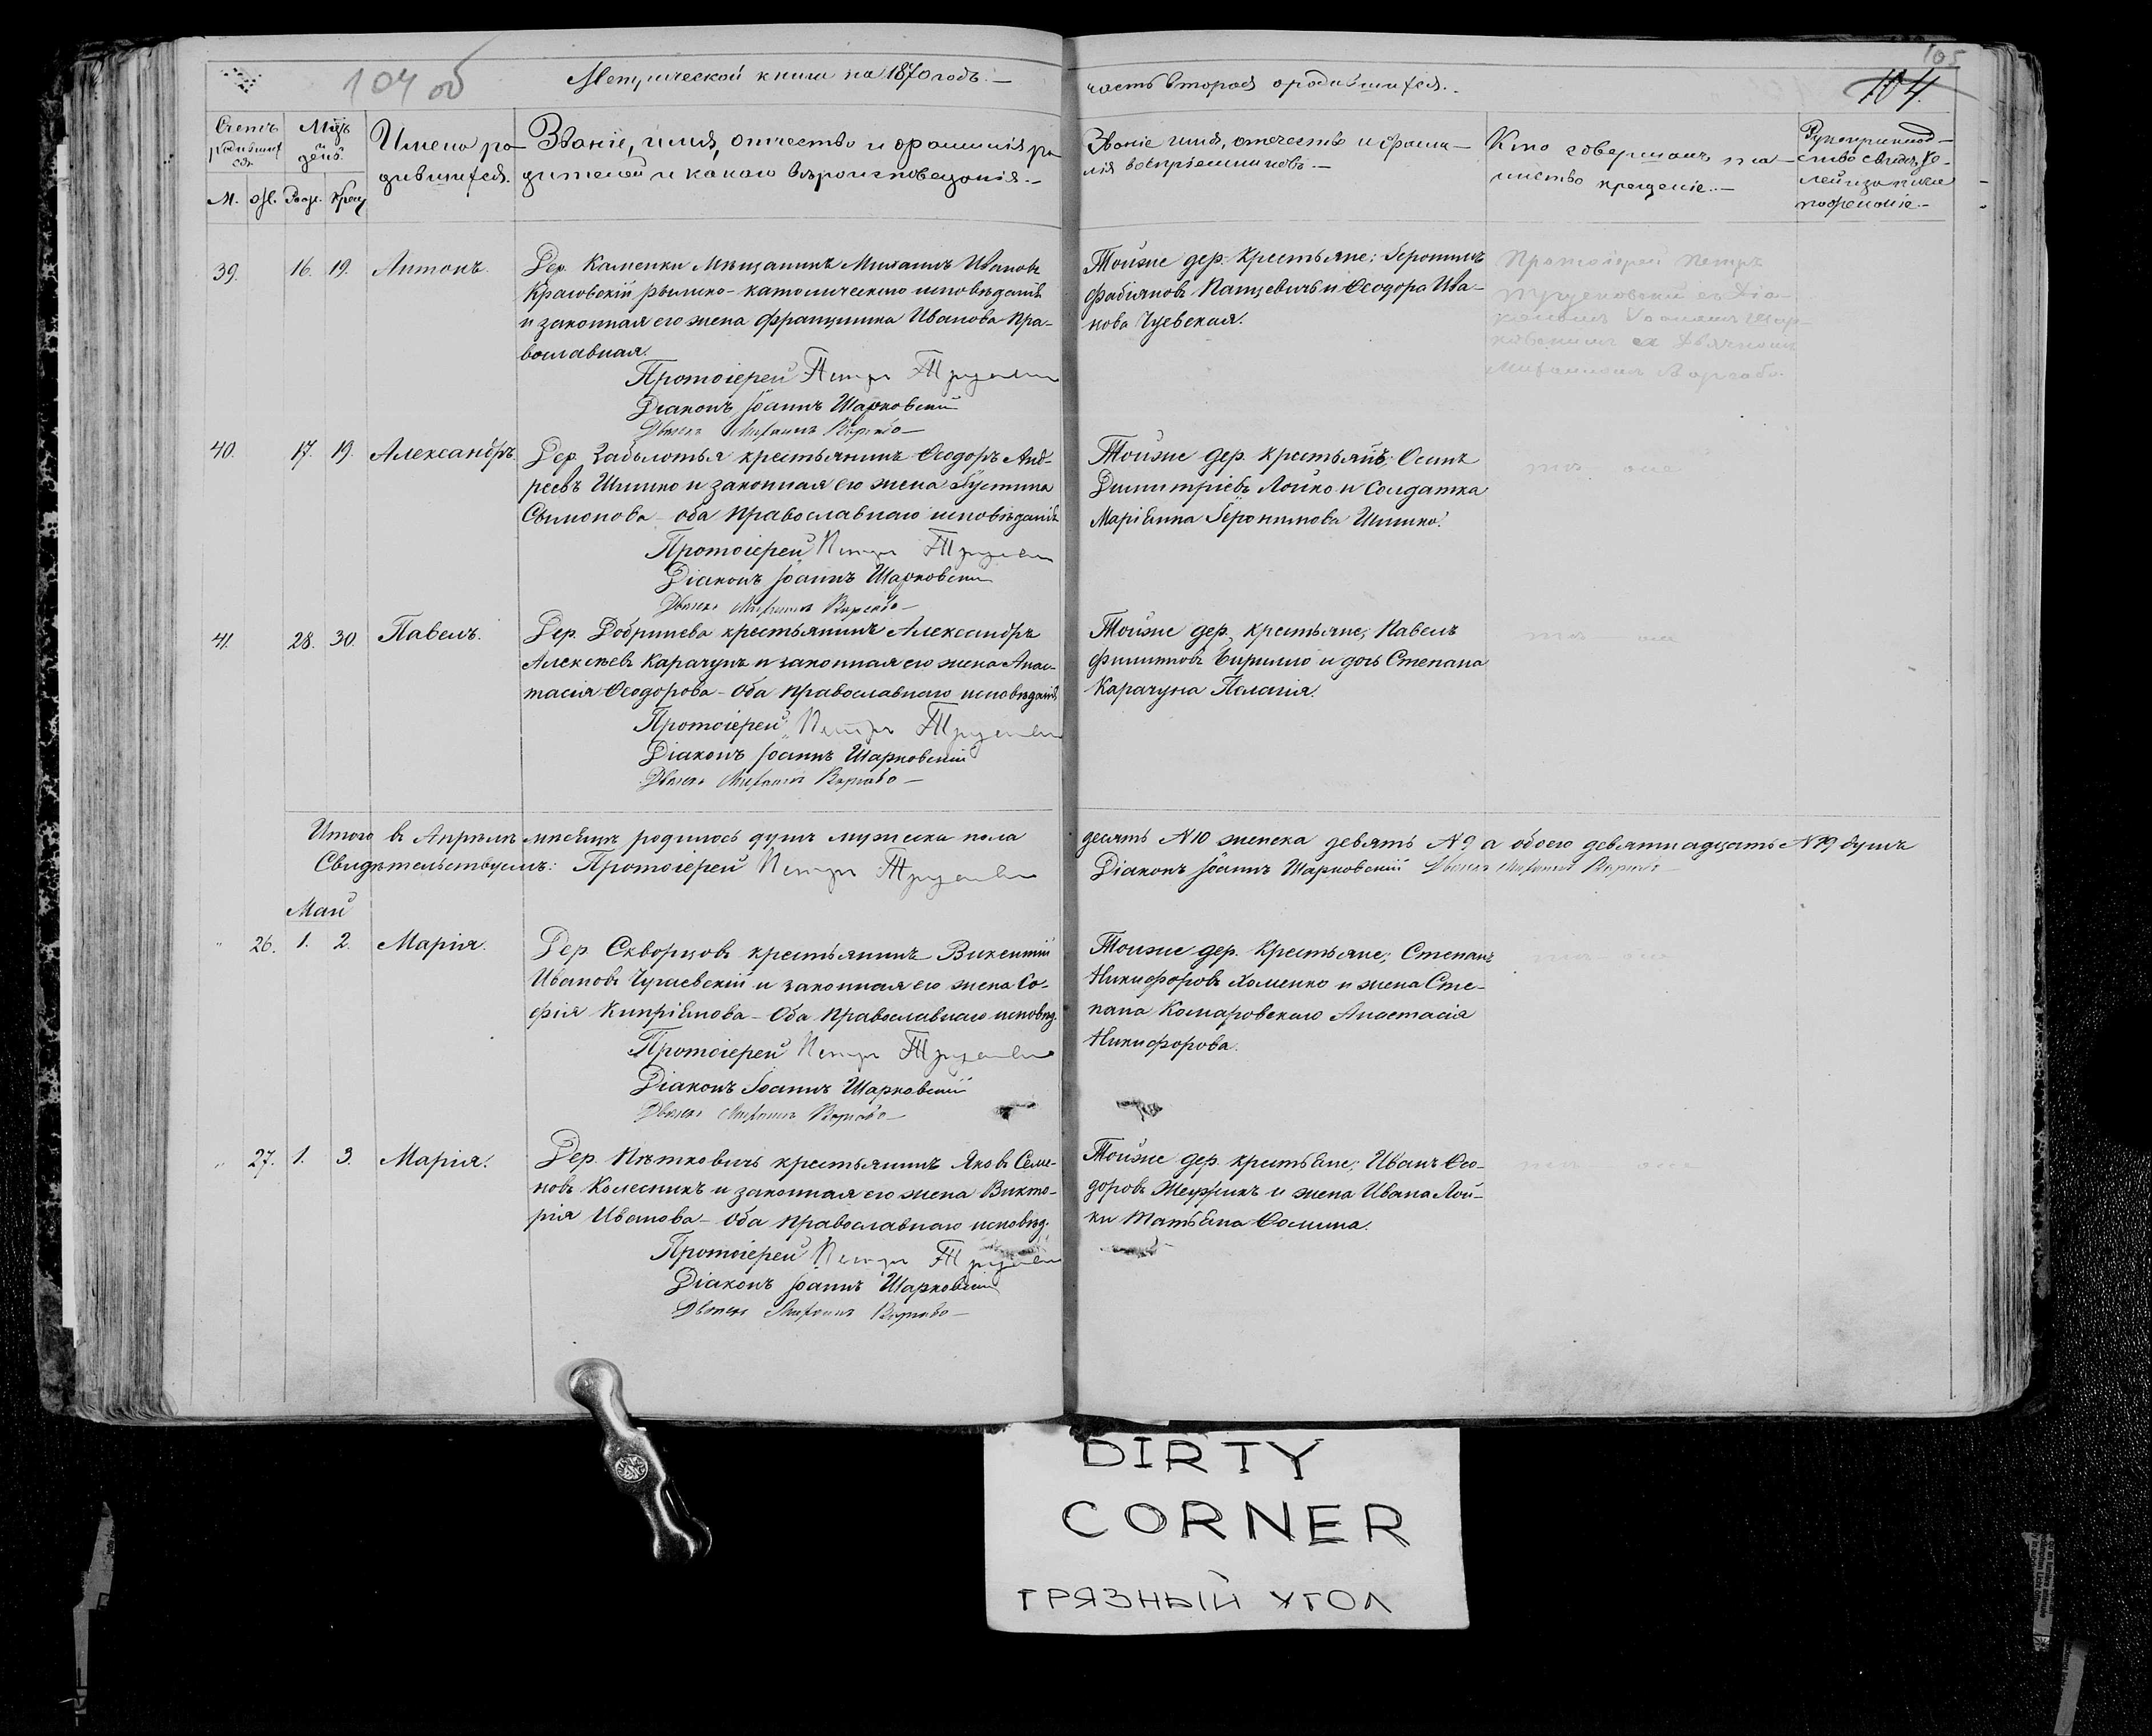 104 об
Метрической книги на 1870 годъ.
часть вторая о родившихся.
105
104.
Счетъ родившихся
М.
Ж.
Мцъ и день
Рожд.
Крещ
Имена родившихся.
Званіе, имя, отчество и фамилія родителей и какого вѣроисповеданія.
Званіе имя, отчество и фамилія воспріемниковъ.
Кто совершалъ таинство крещеніе.
39. 16. 19. Антонъ.
Дер. Каменки Мѣщанинъ Михаилъ Ивановъ
Красовскій римско-католическаго исповѣданія
и законная его жена Францишка Иванова Пра-
вославная.
Протоіерей Петръ
Діаконъ Іоаннъ Шарковскій
Тойже дер. Крестьяне: Іеронимъ
Фабіяновъ Пацевичъ и Ѳеодора Ива-
нова Чуевская.
Протоіерей Петръ
40. 17. 19. Александръ.
Дер. Заболотья крестьянинъ Ѳеодоръ Анд-
реевъ Шишко и законная его жена Іустина
Симонова - оба Православнаго исповѣданія
Протоіерей Петръ
Діаконъ Іоаннъ Шарковскій
Тойже дер. крестьянѣ; Осипъ
Димитріевъ Лойко и Солдатка
Маріанна Іеронимова Шишко.
тѣ-же
41. 28. 30. Павелъ.
Дер. Добринева крестьянинъ Александръ
Алексѣевъ Карачунъ и законная его жена Анас-
тасія Ѳеодорова - Оба Православнаго исповѣданія
Протоіерей Петръ
Діаконъ Іоаннъ Шарковскій
Тойже дер. крестьяне; Павелъ
Филиповъ и дочь Степана
Карачуна Пелагія.
тѣ-же
Итого въ Апрѣлѣ мѣсяцѣ родилось душъ мужеска пола
десять № 10 женска девять № 9 а обоего девятнадцать № 19 душъ
Свидѣтельствуемъ: Протоіерей Петръ
Діаконъ Іоаннъ Шарковскій
Май
" 26. 1. 2. Марія.
Дер. Скворцовъ крестьянинъ Викентій
Ивановъ Чугаевскій и законная его жена Со-
фія Кипріанова - Оба Православнаго исповѣд.
Протоіерей Петръ
Діаконъ Іоаннъ Шарковскій
Тойже дер. Крестьяне; Степанъ
Никифоровъ Хоменко и жена Сте-
пана Комаровскаго Анастасія
Никифорова.
тѣ-же
" 27. 1. 3. Марія.
Дер. Пятковичъ крестьянинъ Яковъ Семе-
новъ Колесникъ и законная его жена Викто-
рія Иванова - Оба Православнаго исповѣд.
Протоіерей Петръ
Діаконъ Іоаннъ Шарковскій
Тойже дер. крестьяне; Иванъ Ѳео-
доровъ и жена Ивана Лой-
ки Татьяна Ѳомина.
тѣ-же
DIRTY
CORNER
ГРЯЗНЫЙ УГОЛ